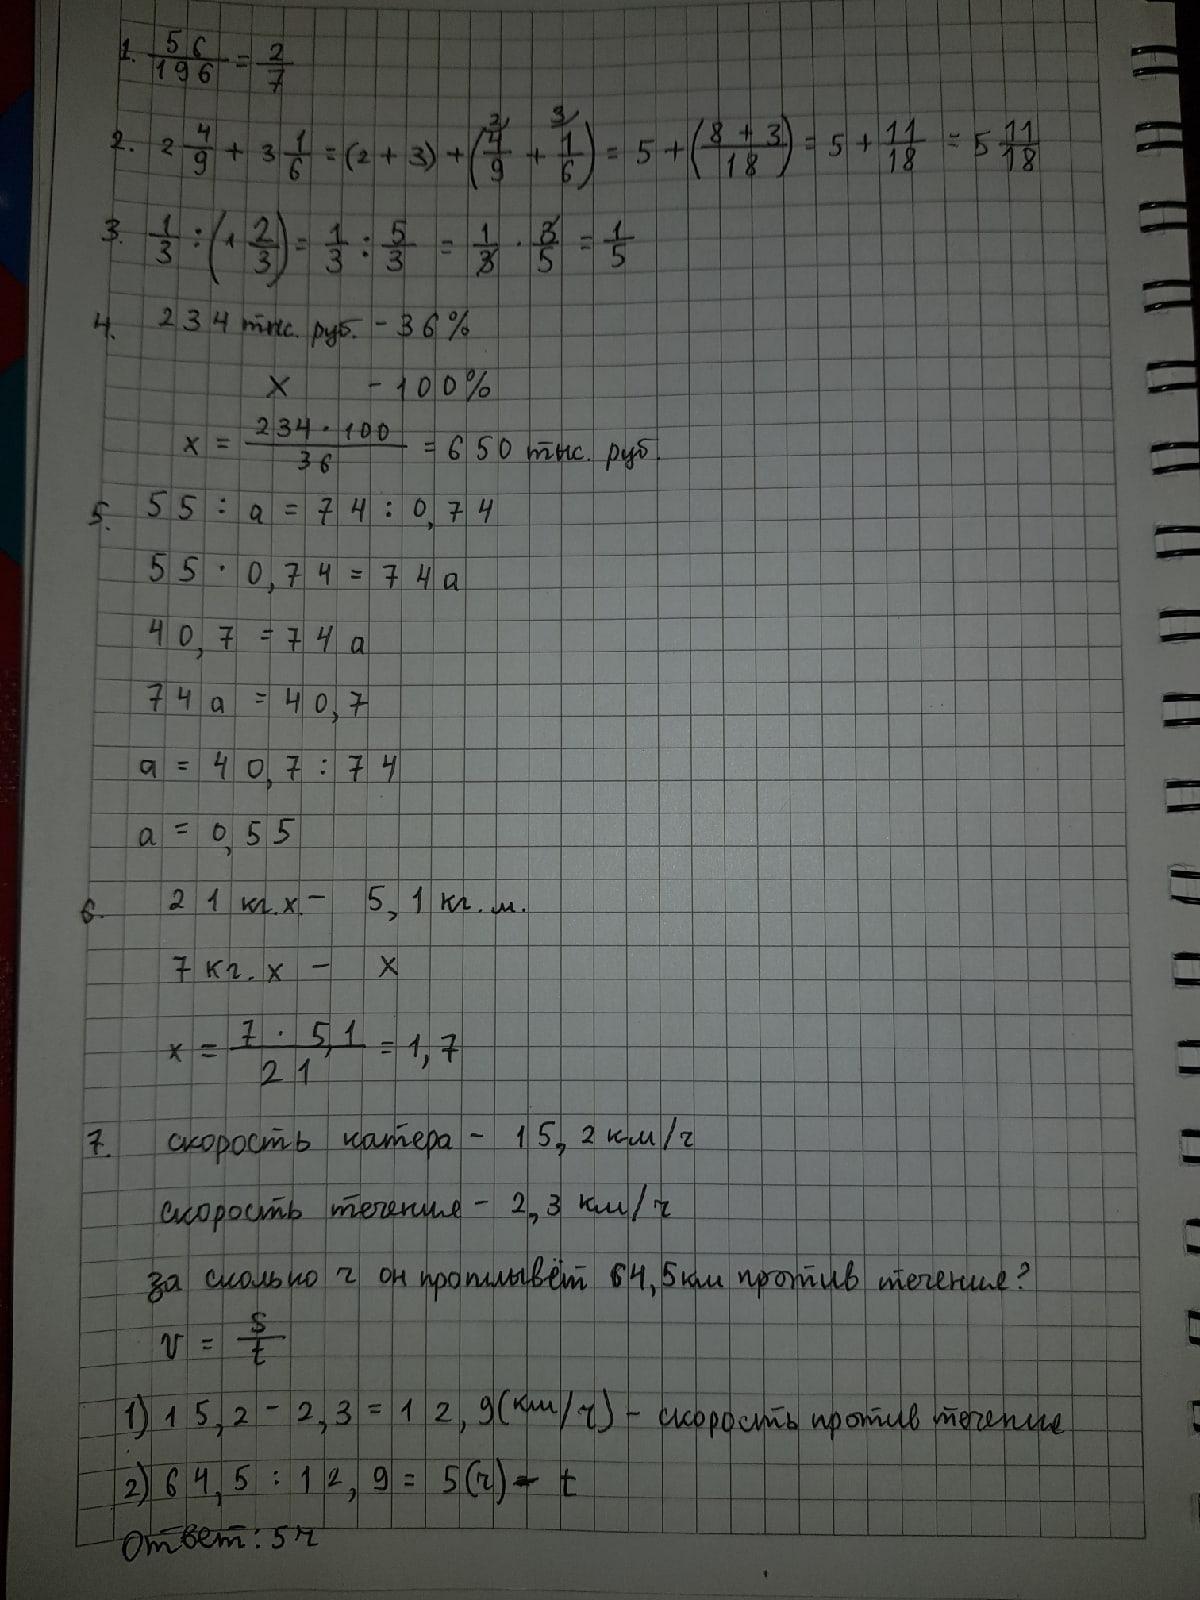 1. 56/196 = 2/7
2. 2 4/9 + 3 1/6 = (2 + 3) + (4/9 2/ + 1/6 3/) = 5 + (8 + 3 / 18) = 5 + 11/18 = 5 11/18
3. 1/3 : (1 2/3) = 1/3 : 5/3 = 1/3 · 3/5 = 1/5
4. 234 тыс. руб. - 36%
x - 100%
x = 234 · 100 / 36 = 650 тыс. руб.
5. 55 : a = 74 : 0,74
55 · 0,74 = 74a
40,7 = 74a
74a = 40,7
a = 40,7 : 74
a = 0,55
6. 21 кг.х - 5,1 кг.м.
7 кг.х - x
x = 7 · 5,1 / 21 = 1,7
7. скорость катера - 15,2 км/ч
скорость течения - 2,3 км/ч
за сколько ч он проплывёт 64,5км против течение?
v = s/t
1) 15,2 - 2,3 = 12,9(км/ч) - скорость против течение
2) 64,5 : 12,9 = 5(ч) - t
Ответ: 5ч